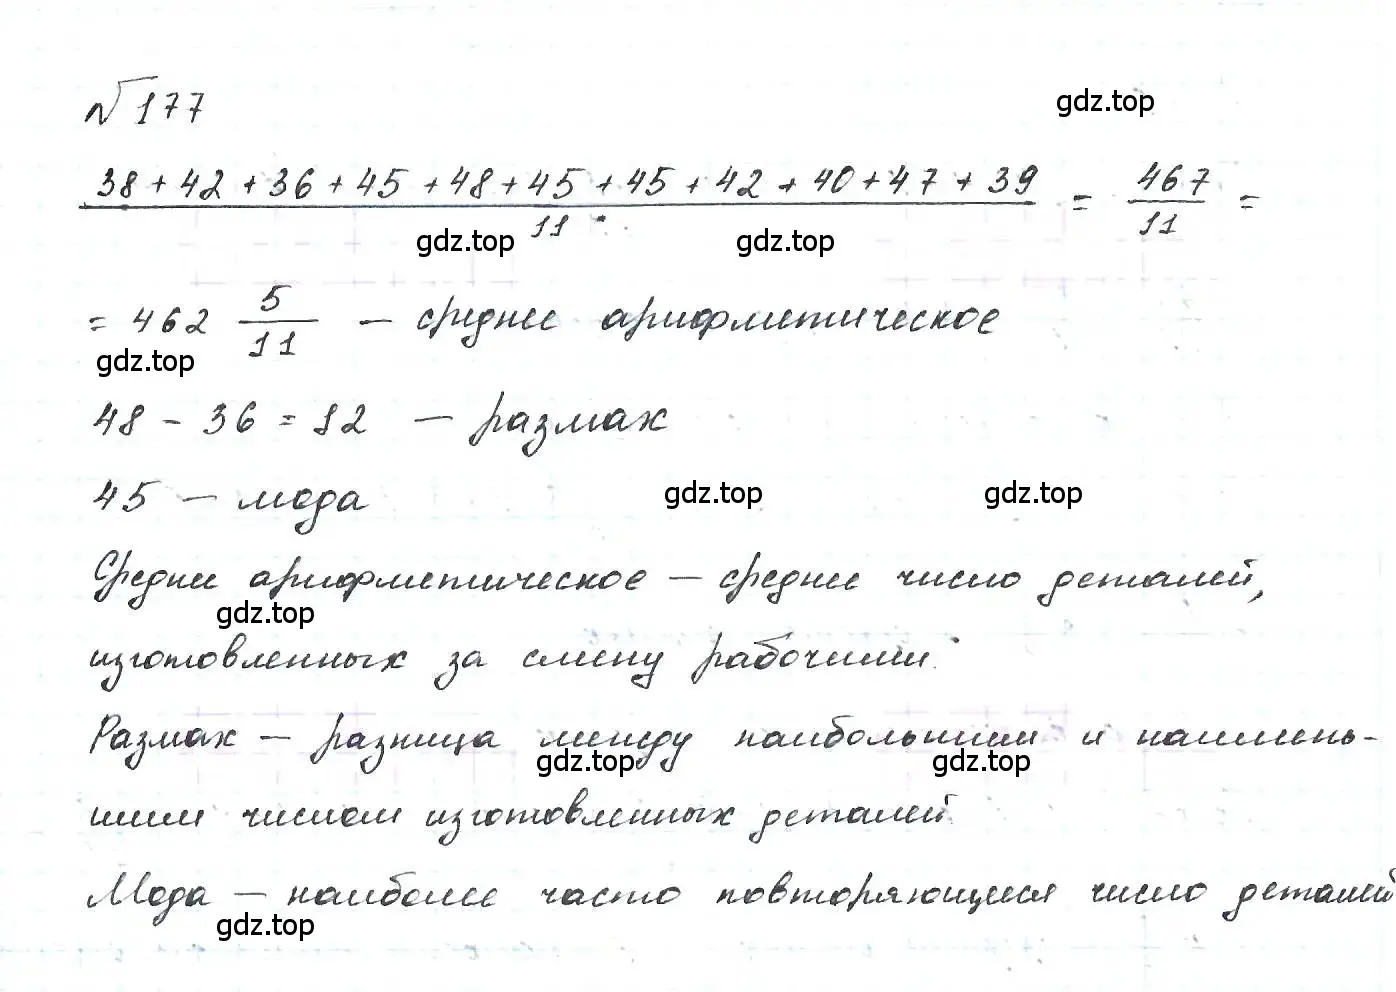 № 177
gdz.top
38 + 42 + 36 + 45 + 48 + 45 + 45 + 42 + 40 + 47 + 39 / 11 = 467 / 11 =
gdz.top gdz.top
= 462 5/11 — среднее арифметическое
gdz.top
48 - 36 = 12 — размах
45 — мода
gdz.top gdz.top
Среднее арифметическое — среднее число деталей,
gdz.top
изготовленных за смену рабочими.
Размах — разница между наибольшим и наимень-
gdz.top gdz.top
шим числом изготовленных деталей.
Мода — наиболее часто повторяющееся число деталей
gdz.top